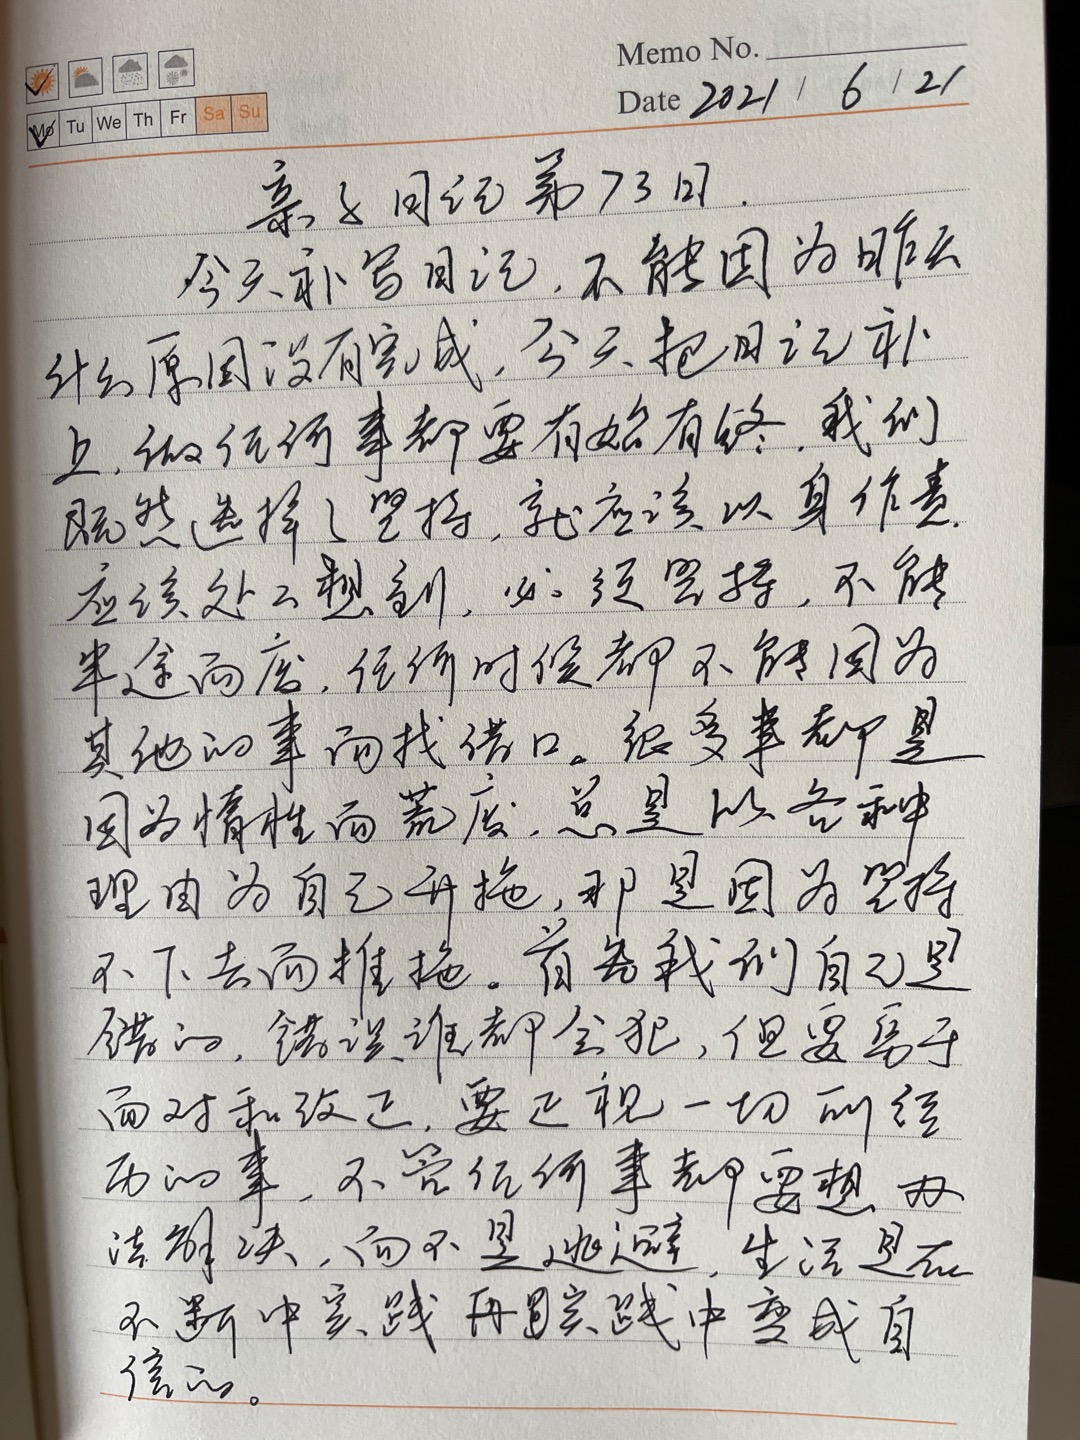 Memo No.
Date 2021 / 6 / 21
Mo Tu We Th Fr Sa Su
亲子日记第73日.
今天补写日记,不能因为昨天
什么原因没有完成,今天把日记补
上,做任何事都要有始有终.我们
既然选择了坚持,就应该以身作责.
应该处处想到,必须坚持,不能
半途而废,任何时候都不能因为
其他的事而找借口。很多事都是
因为惰性而荒废,总是以各种
理由为自己开拖,那是因为坚持
不下去而推拖。首先我们自己是
错的,错误谁都会犯,但要勇于
面对和改正,要正视一切所经
历的事,不管任何事都要想办
法解决,而不是逃避,生活是在
不断中实践再实践中变成自
信的。